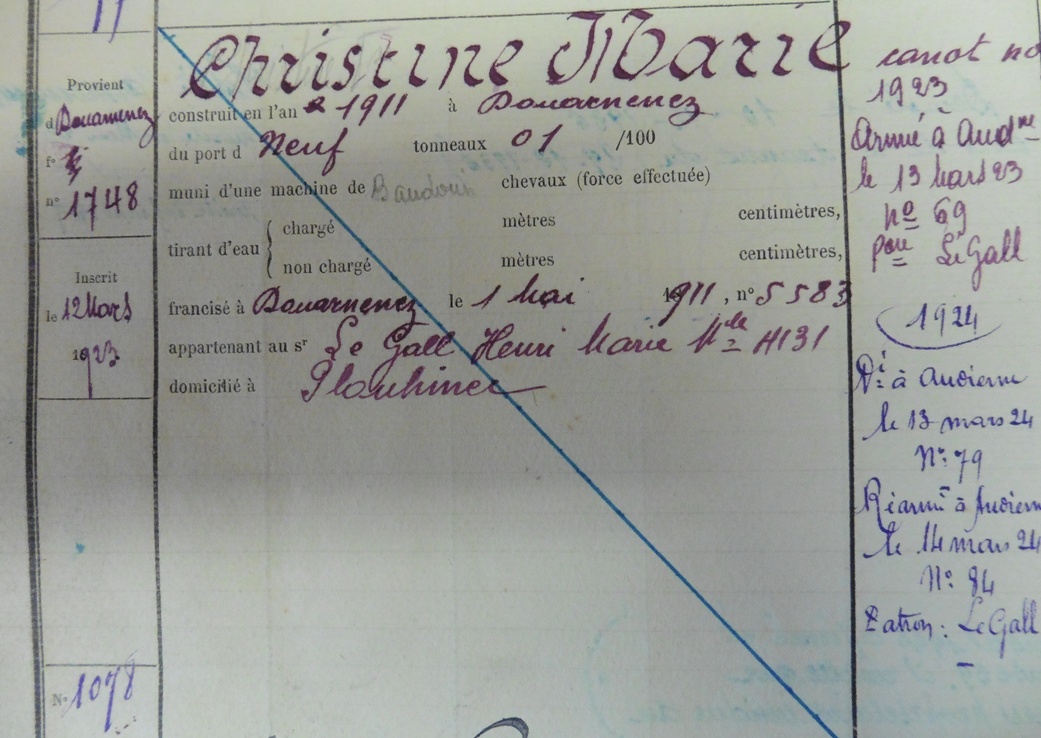 Provient
d Douarnenez
f°
n° 1748
Inscrit
le 12 Mars
1923
N° 1078
Christine Marie
construit en l'an 1911 à Douarnenez
du port d Neuf tonneaux 01 /100
muni d'une machine de Baudouin chevaux (force effectuée)
tirant d'eau { chargé mètres centimètres,
non chargé mètres centimètres,
francisé à Douarnenez le 1 Mai 1911, n° 5583
appartenant au sr Le Gall Henri Marie Mle H131
domicilié à Plouhinec
canot no
1923
Armé à Audne
le 13 Mars 23
no 69
pon Le Gall
1924
Dé à Audierne
le 13 mars 24
No: 79
Réarmé à Audiern
le 14 mars 24
No: 84
Patron: Le Gall